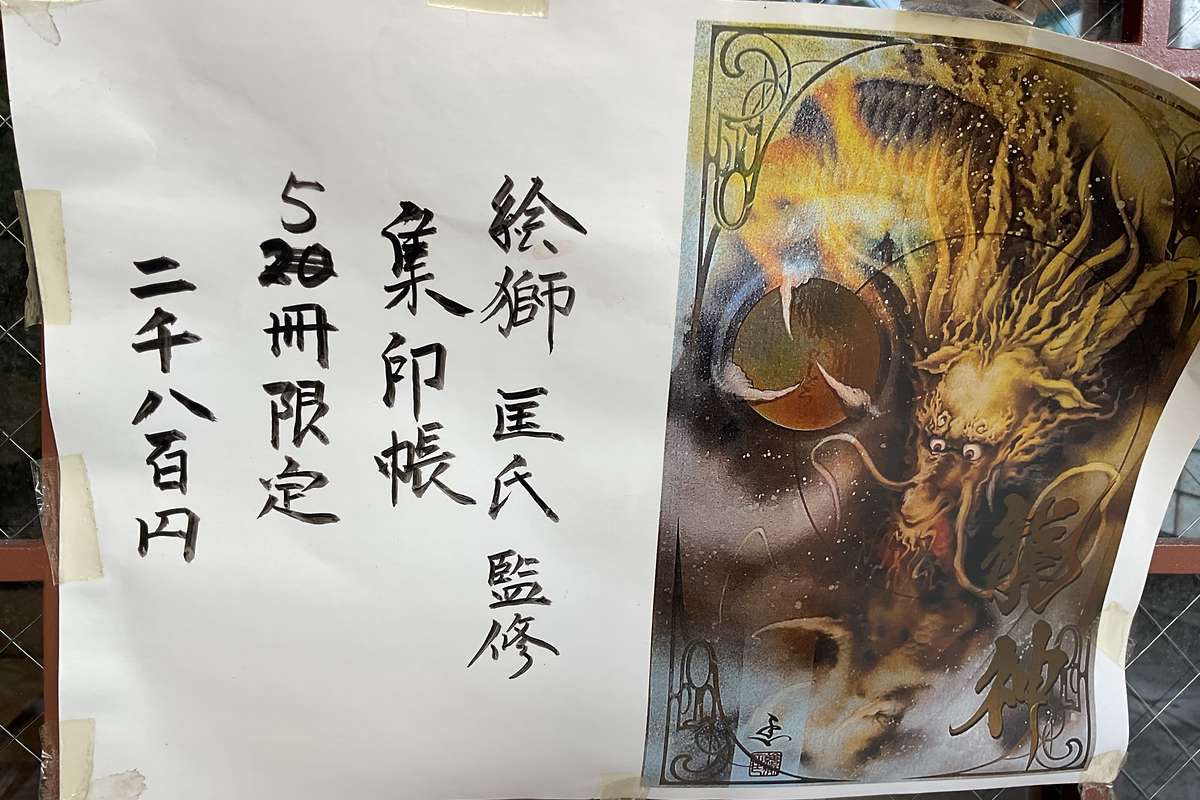 龍神
絵獅 匡氏 監修
集印帳
5冊限定
二千八百円